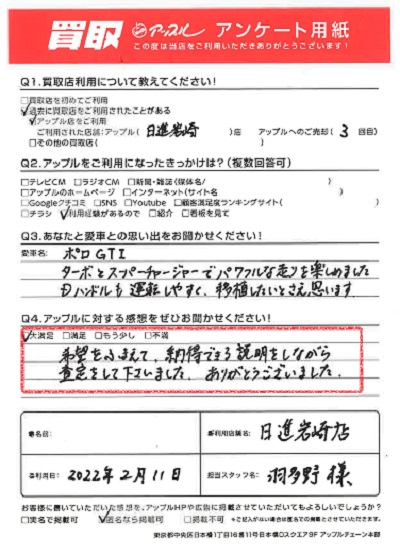 買取 アップル アンケート用紙
この度は当店をご利用いただきありがとうございます!
Q1.買取店利用について教えてください!
□買取店を初めてご利用
☑過去に買取店をご利用されたことがある
☑アップル店をご利用
ご利用された店舗:アップル( 日進岩崎 )店 アップルへのご売却( 3 回目)
□その他の買取店( )
Q2.アップルをご利用になったきっかけは?(複数回答可)
□テレビCM □ラジオCM □新聞・雑誌(媒体名/ )
□アップルのホームページ □インターネット(サイト名 )
□Googleクチコミ □SNS □Youtube □顧客満足度ランキングサイト( )
□チラシ ☑利用経験があるので □紹介 □看板を見て
Q3.あなたと愛車との思い出をお聞かせください!
愛車名: ポロ GTI
ターボとスーパーチャージャーでパワフルな走りを楽しめました
Dハンドルも運転しやすく、移植したいとさえ思います
Q4.アップルに対する感想をぜひお聞かせください!
☑大満足 □満足 □もう少し □不満
希望をふまえて、納得できる説明をしながら
査定をして下さいました。ありがとうございました。
署名前:
ご利用店舗名: 日進岩崎店
ご利用日: 2022年2月11日
担当スタッフ名: 羽多野 様
お客様に書いていただいた感想を、アップルHPや広告に掲載させていただいてもよろしいでしょうか?
□実名で掲載可 ☑匿名なら掲載可 □掲載不可 *ご記入がない場合は匿名での掲載とさせていただきます。
東京都中央区日本橋1丁目16番11号日本橋Dスクエア9F アップルチェーン本部